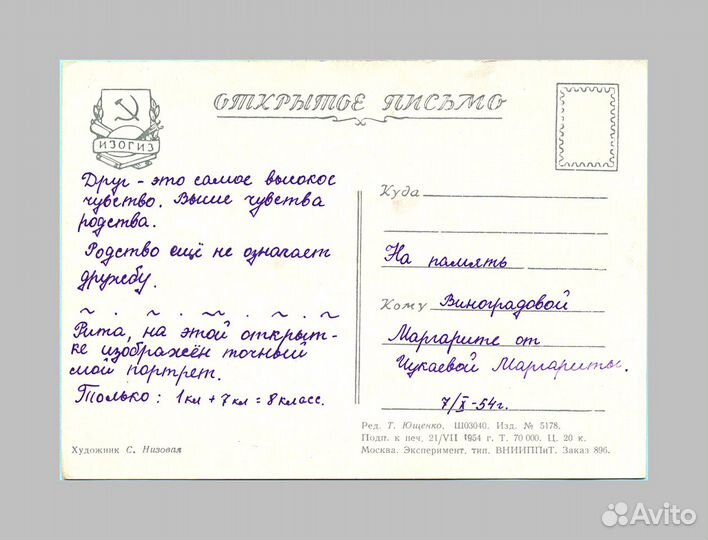 ОТКРЫТОЕ ПИСЬМО
ИЗОГИЗ
Друг - это самое высокое
чувство. Выше чувства
родства.
Родство ещё не означает
дружбу.
Рита, на этой открыт-
ке изображён точный
мой портрет.
Только: 1 кл + 7 кл = 8 класс.
Художник С. Низовая
Куда
На память
Кому Виноградовой
Маргарите от
Чукаевой Маргариты.
7/X-54г.
Ред. Т. Ющенко. Ш03040. Изд. № 5178.
Подп. к печ. 21/VII 1954 г. Т. 70 000. Ц. 20 к.
Москва. Эксперимент. тип. ВНИИППиТ. Заказ 896.
Avito